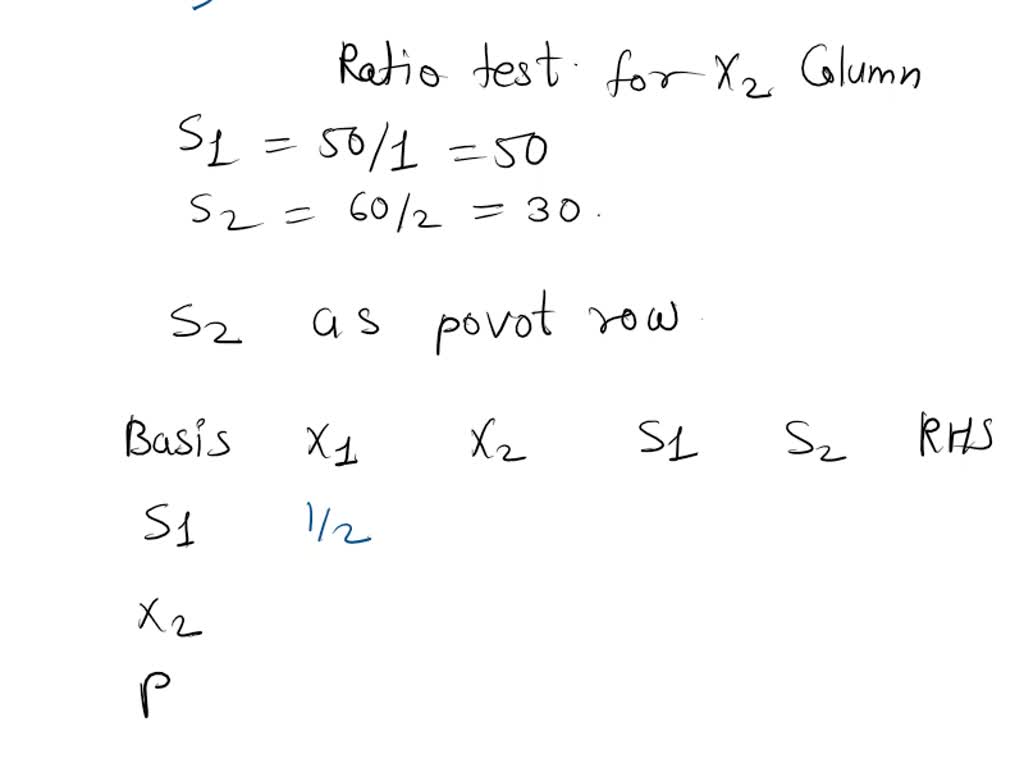 Ratio test for X2 Column
S1 = 50/1 = 50
S2 = 60/2 = 30.
S2 as povot row
Basis X1 X2 S1 S2 RHS
S1 1/2
X2
P